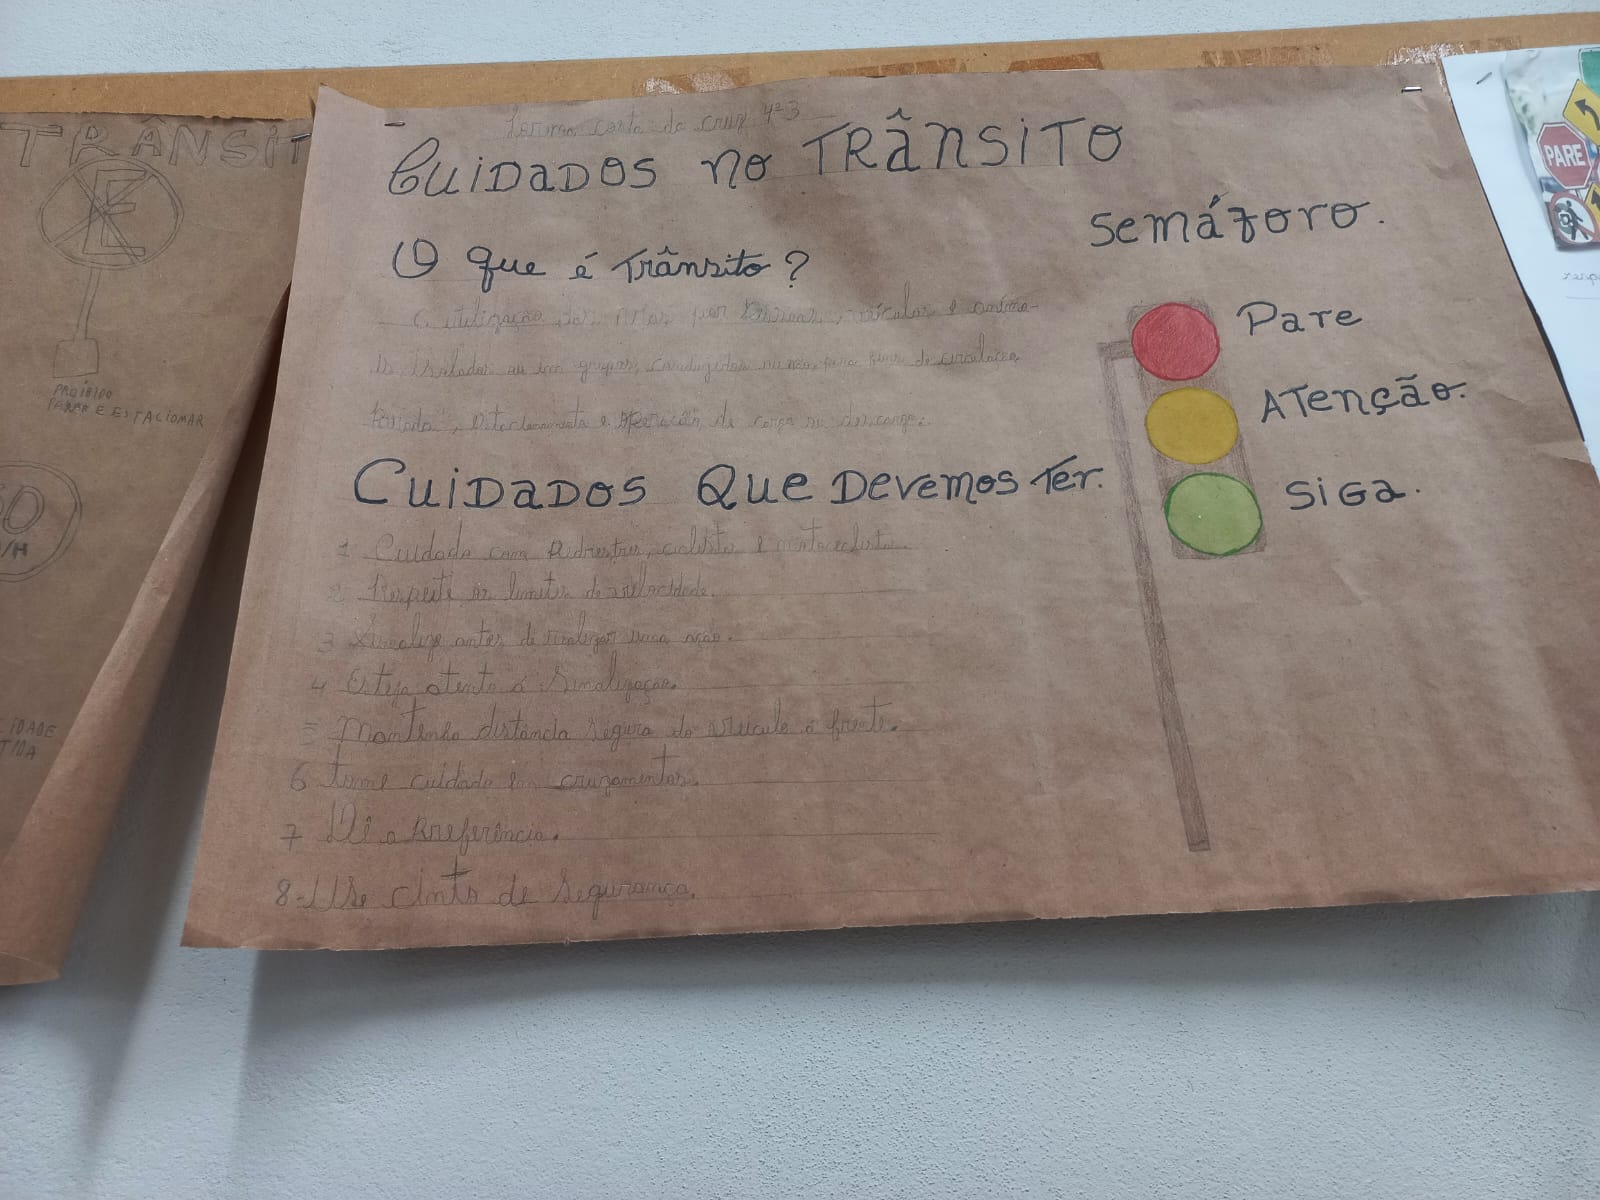 TRÂNSIT
PROIBIDO
PARAR E ESTACIOMAR
/H
IDADE
costa da cruz 4º3
Cuidados no Trânsito
O que é Trânsito?
C utilização das por veículos e anima-
is isolados ou em grupos, conduzidos ou não, para fins de circulação
Parada, e operação de carga ou descarga.
Cuidados que devemos ter.
1 Cuidado com Pedrestres, ciclista e motociclista.
2 Respeite os limites de velocidade.
3 Sinalize antes de realizar uma ação.
4 Esteja atento á Sinalização.
5 Mantenha distância segura do veículo á frente.
6 tome cuidado em cruzamentos.
7 Dê a Preferência.
8-Use cinto de segurança.
Semáforo.
Pare
Atenção.
Siga.
PARE